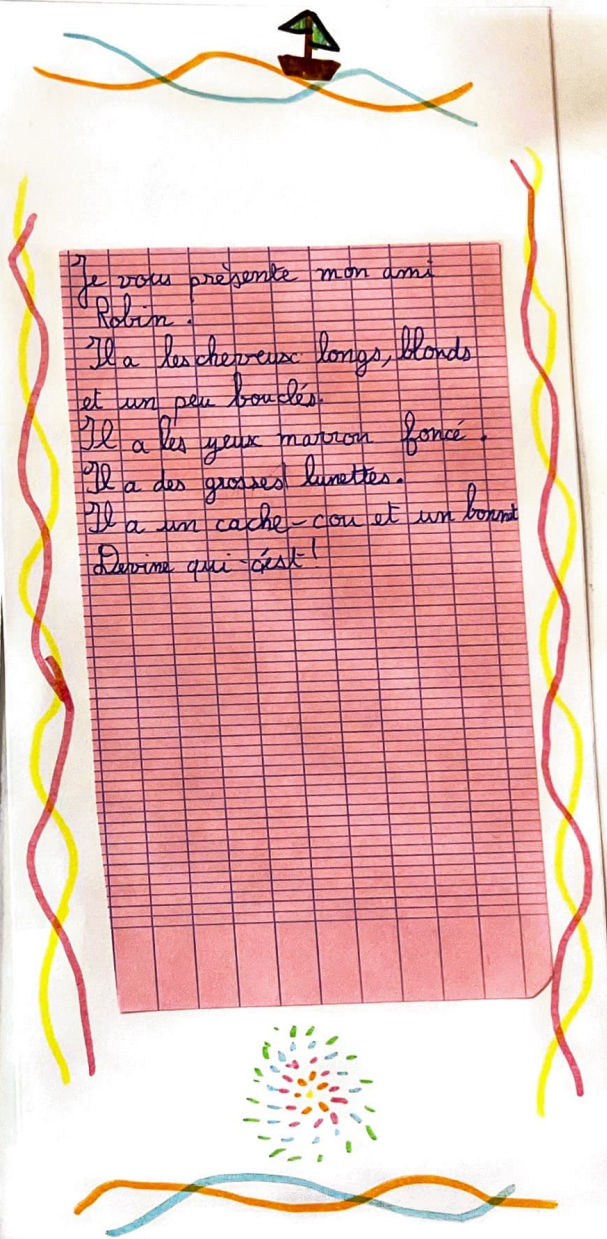 Je vous présente mon ami
Robin.
Il a les cheveux longs, blonds
et un peu bouclés.
Il a les yeux marron foncé.
Il a des grosses lunettes.
Il a un cache-cou et un bonnet
Devine qui-c'est!